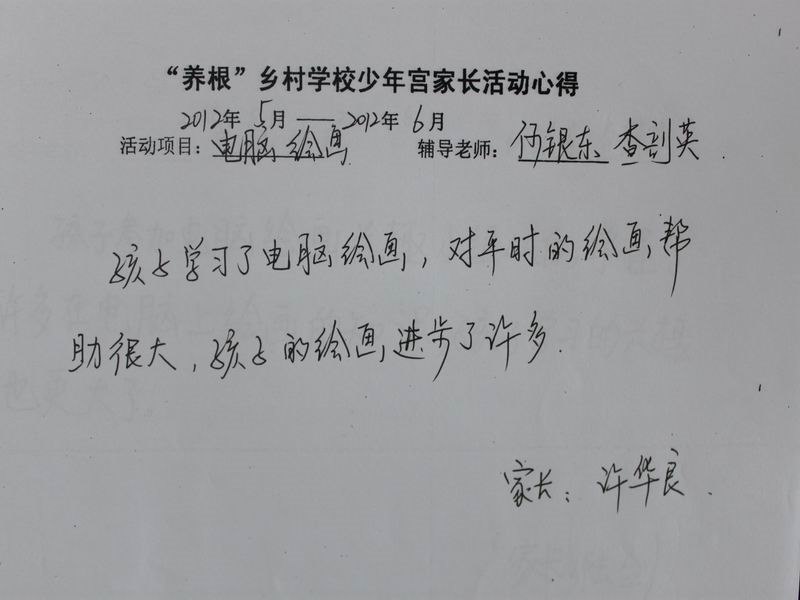 “养根”乡村学校少年宫家长活动心得
2012年 5月 —— 2012年 6月
活动项目：电脑绘画 辅导老师：伍银东 查剖英
孩子学习了电脑绘画，对平时的绘画帮
助很大，孩子的绘画进步了许多.
家长：许华良.